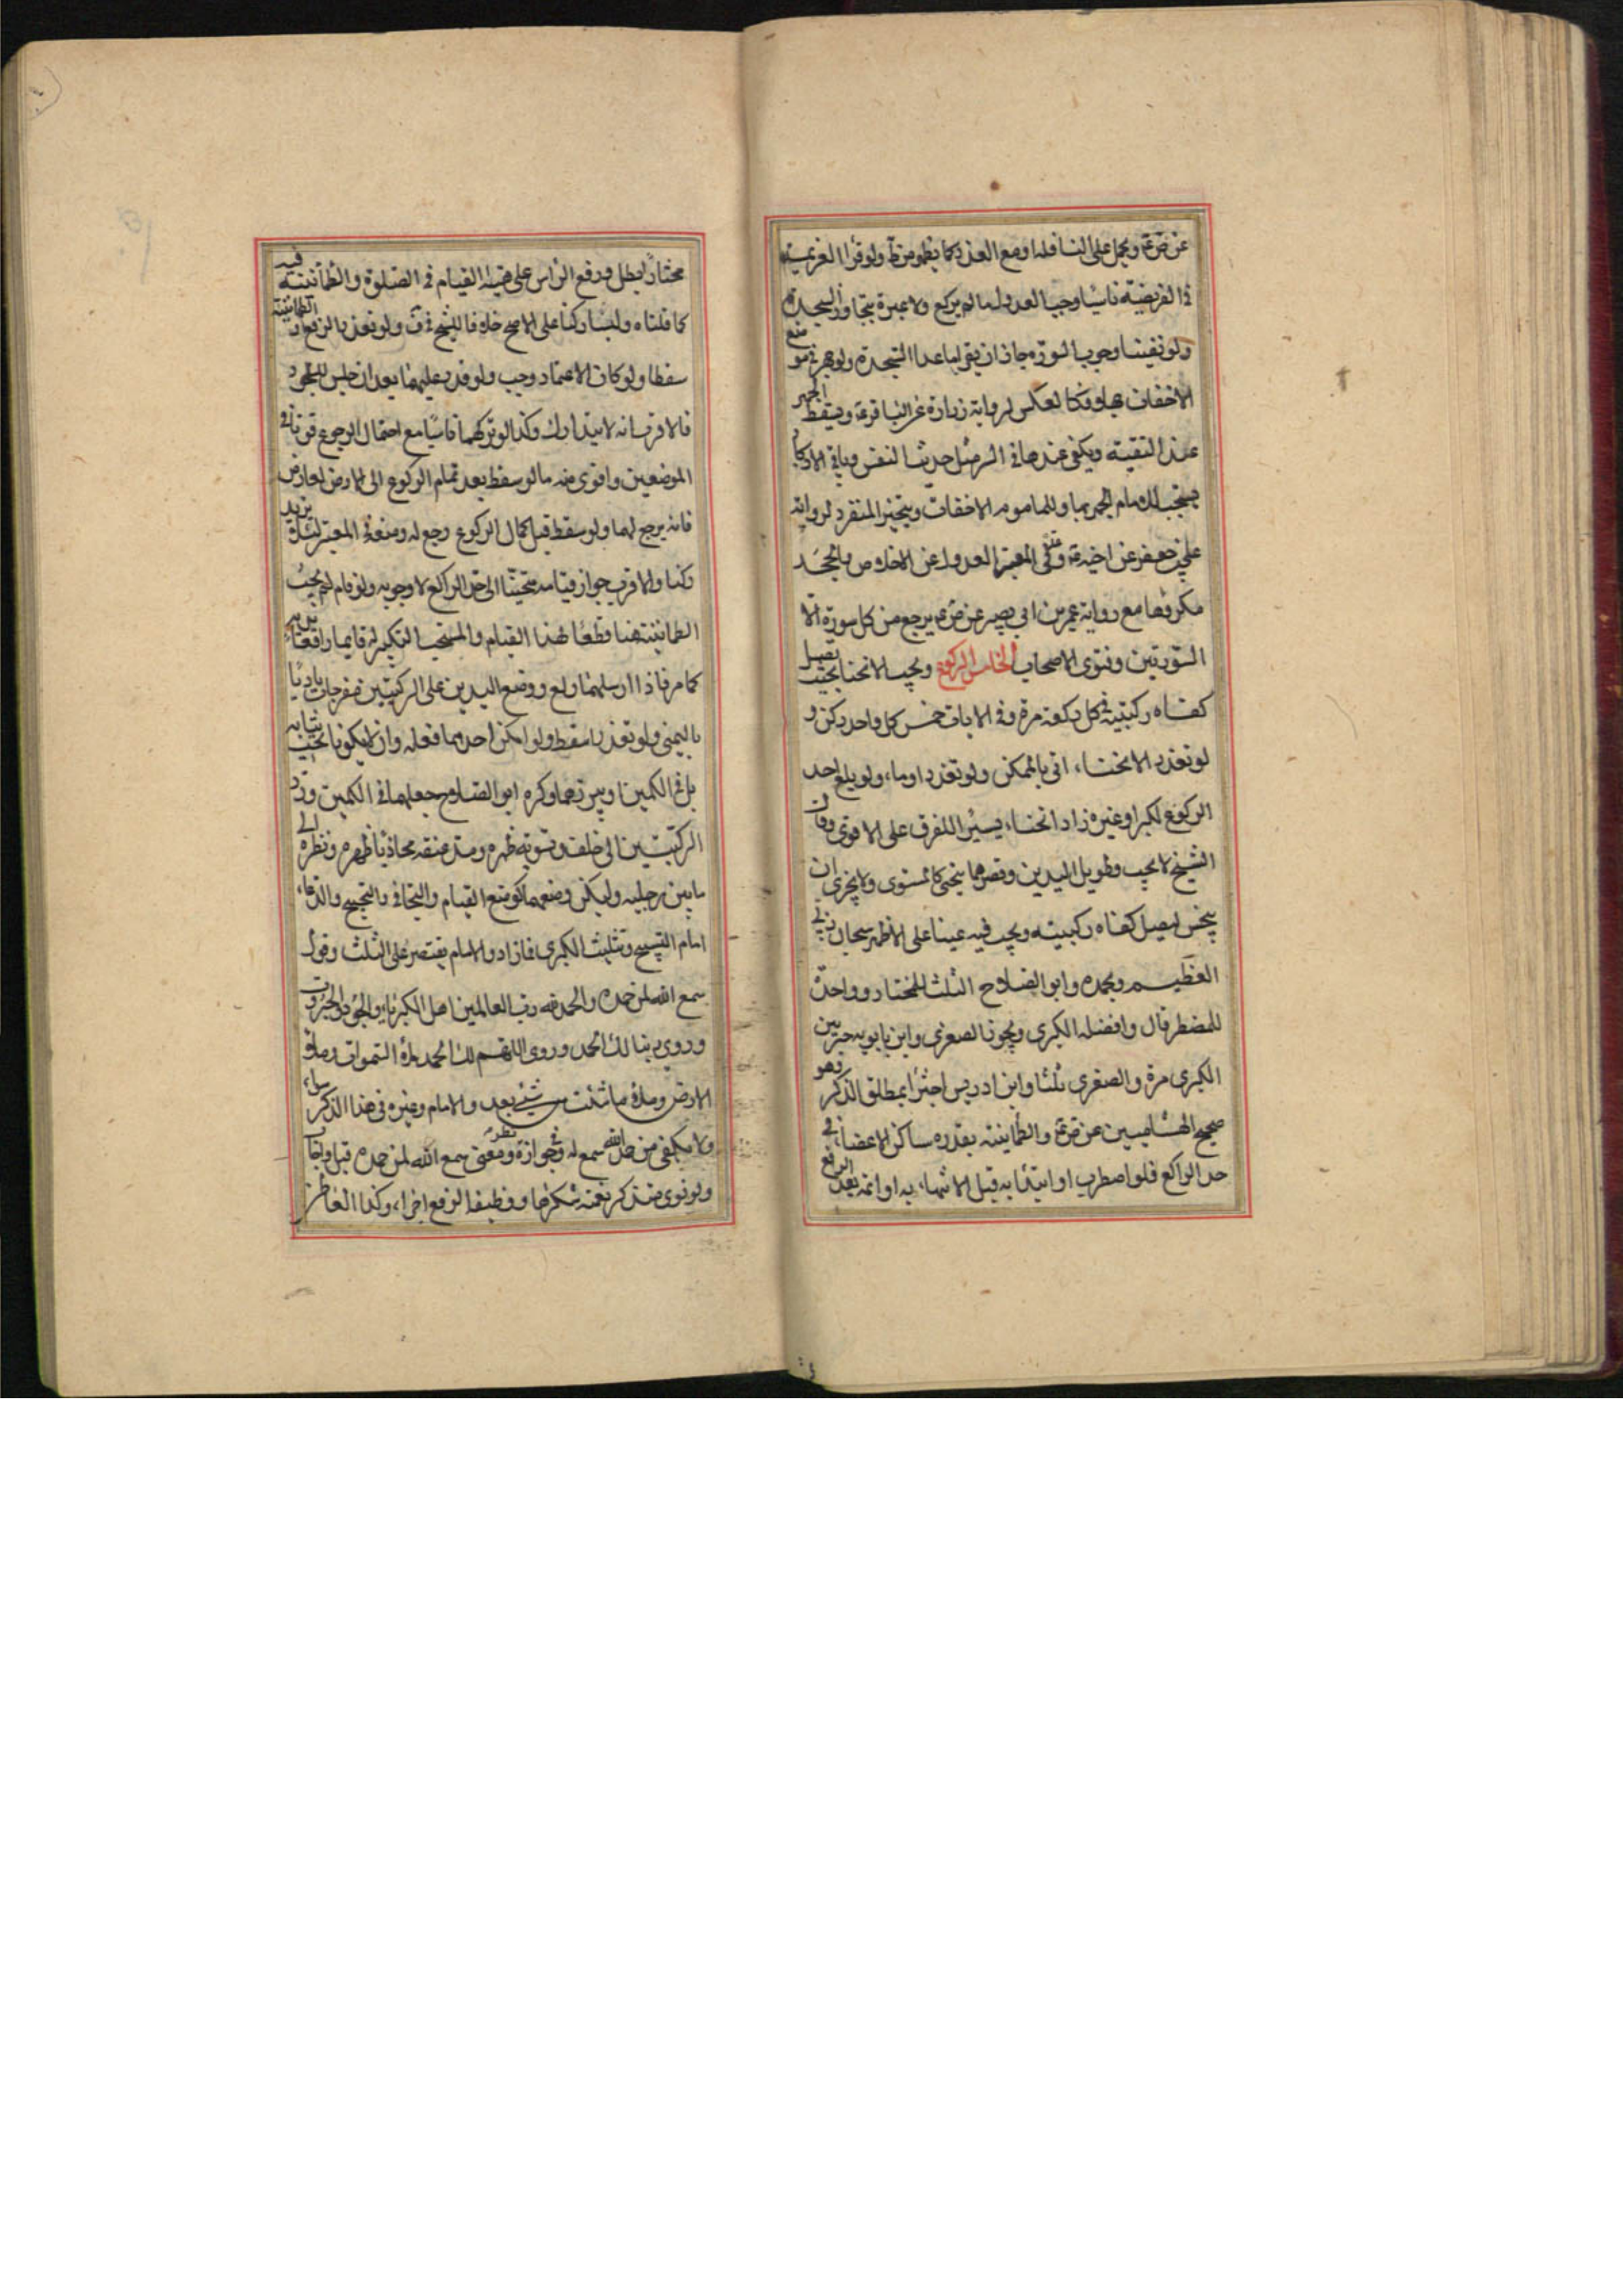 عن ض ع ويحمل على النافلة او مع العذر كما يظهر من ظ ولو قرأ العزيمة
في الفريضة ناسيا وجب العدول ما لم يركع ولا عبرة بتجاوز السجدة
ولو نفينا وجوب السورة جاز ان يقرا ما عدا السجدة ولو جهر في موضع
الاخفات او بالعكس لرواية زرارة عن الباقر ع ويسقط الجهر
عند التقية ويكفي عندها في السر مثل حديث النفس وباقي الاذكار
يستحب للامام الجهر بها وللماموم الاخفات ويتخير المنفرد لرواية
علي بن جعفر عن اخيه ع وفي المعتبر العدول عن الاخلاص والجحد
مكروها مع رواية عمرو بن ابي بصير عن ض ع يرجع من كل سورة الا
السورتين وفتوى الاصحاب الخامس الركوع ويجب الانحناء بحيث يصل
كفاه ركبتيه في كل ركعة مرة وفي الايات خمس كل واحد ركن و
لو تعذر الانحناء اتى بالممكن ولو تعذر اوماء ولو بلغ حد
الركوع لكبر او غيره زاد انحناء يسيرا للفرق على الاقوى وقال
الشيخ لا يجب وطويل اليدين وقصيرهما ينحني كالمستوى ولا يجزي ان
ينخس ليصل كفاه ركبتيه ويجب فيه عينا على الاظهر سبحان ربي
العظيم وبحمده وابو الصلاح الثلث للمختار وواحدة
للمضطر قال وافضله الكبرى ويجوز الصغرى وابن بابويه خير بين
الكبرى مرة والصغرى ثلثا وابن ادريس اجتزا بمطلق الذكر وهو
صحيح الهشامين عن ض ع والطمانينة بقدره ساكن الاعضاء في
حد الراكع فلو اضطرب او ابتدا به قبل الانتهاء به او اتمه بعد الرفع
مختارا بطل ورفع الراس على هيئة القيام في الصلوة والطمانينة فيه
كما قلناه وليسا ركنا على الاصح خلافا للشيخ في ف ولو تعذر الرفع او الطمانينة
سقطا ولو كان الاعتماد وجب ولو قدر عليهما بعد ان جلس للسجود
فالاقرب انه لا يتدارك وكذا لو تركهما ناسيا مع احتمال الرجوع قويا في
الموضعين واقوى منه ما لو سقط بعد تمام الركوع الى الارض لعارض
فانه يرجع لهما ولو سقط قبل كمال الركوع رجع له ومنعه في المعتبر لئلا يزيد
ركنا والاقرب جواز قيامه منحنيا الى حد الراكع لا وجوبه ولو قام لم يجب
الطمانينة هنا قطعا لهذا القيام والمستحب التكبير له قايما رافعا يديه
كما مر فاذا ارسلهما ركع ووضع اليدين على الركبتين منفرجات باديا
باليمنى ولو تعذرا سقط ولو امكن احدهما فعله وان لا يكونا تحت ثيابه
بل في الكمين او يبرزهما وكره ابو الصلاح جعلهما في الكمين ورد
الركبتين الى خلف وتسوية ظهره ومد عنقه محاذيا ظهره ونظره الى
ما بين رجليه وليكن وضعهما كوضع القيام والتجافي والتجنيح والدعاء
امام التسبيح وتثليث الكبرى فما زاد والامام يقتصر على الثلث وقول
سمع الله لمن حمده والحمد لله رب العالمين اهل الكبرياء والجود والجبروت
وروي ربنا لك الحمد وروي اللهم لك الحمد ملء السموات وملء
الارض وملء ما شئت من شيئ بعد والامام وغيره في هذا الذكر سواء
ولا يكفي من حمد الله سمع له وفي جوازه نظر ومعنى سمع الله لمن حمده قبل واجاب
ولو نوى عند ذكر نعمة شكرها ووظيفة الرفع اجزاء وكذا العاطس